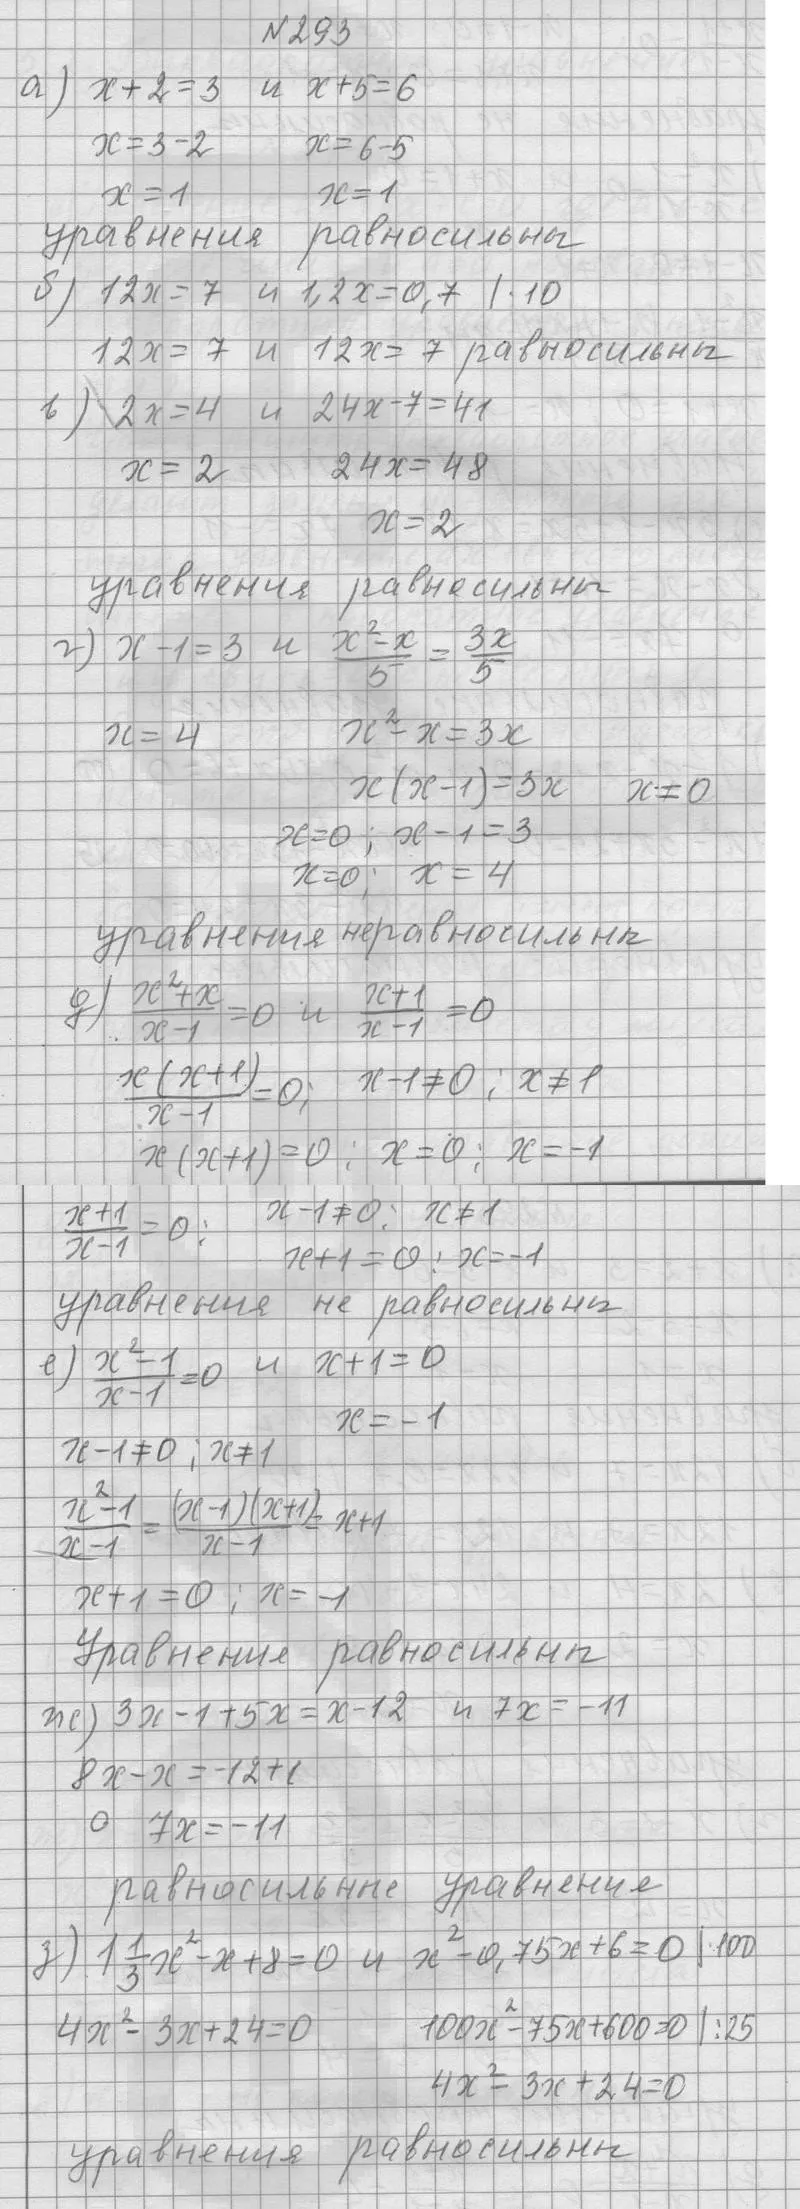 №293
а) x+2=3 и x+5=6
x=3-2 x=6-5
x=1 x=1
уравнения равносильны
б) 12x=7 и 1,2x=0,7 |·10
12x=7 и 12x=7 равносильны
в) 2x=4 и 24x-7=41
x=2 24x=48
x=2
уравнения равносильны
г) x-1=3 и (x²-x)/5 = 3x/5
x=4 x²-x=3x
x(x-1)=3x x≠0
x=0; x-1=3
x=0; x=4
уравнения неравносильны
д) (x²+x)/(x-1)=0 и (x+1)/(x-1)=0
x(x+1)/(x-1)=0; x-1≠0; x≠1
x(x+1)=0; x=0; x=-1
(x+1)/(x-1)=0; x-1≠0; x≠1
x+1=0; x=-1
уравнения не равносильны
е) (x²-1)/(x-1)=0 и x+1=0
x=-1
x-1≠0; x≠1
(x²-1)/(x-1)=(x-1)(x+1)/(x-1)=x+1
x+1=0; x=-1
Уравнения равносильны
ж) 3x-1+5x=x-12 и 7x=-11
8x-x=-12+1
7x=-11
равносильные уравнения
з) 1 1/3 x²-x+8=0 и x²-0,75x+6=0 |·100
4x²-3x+24=0 100x²-75x+600=0 |:25
4x²-3x+24=0
уравнения равносильны